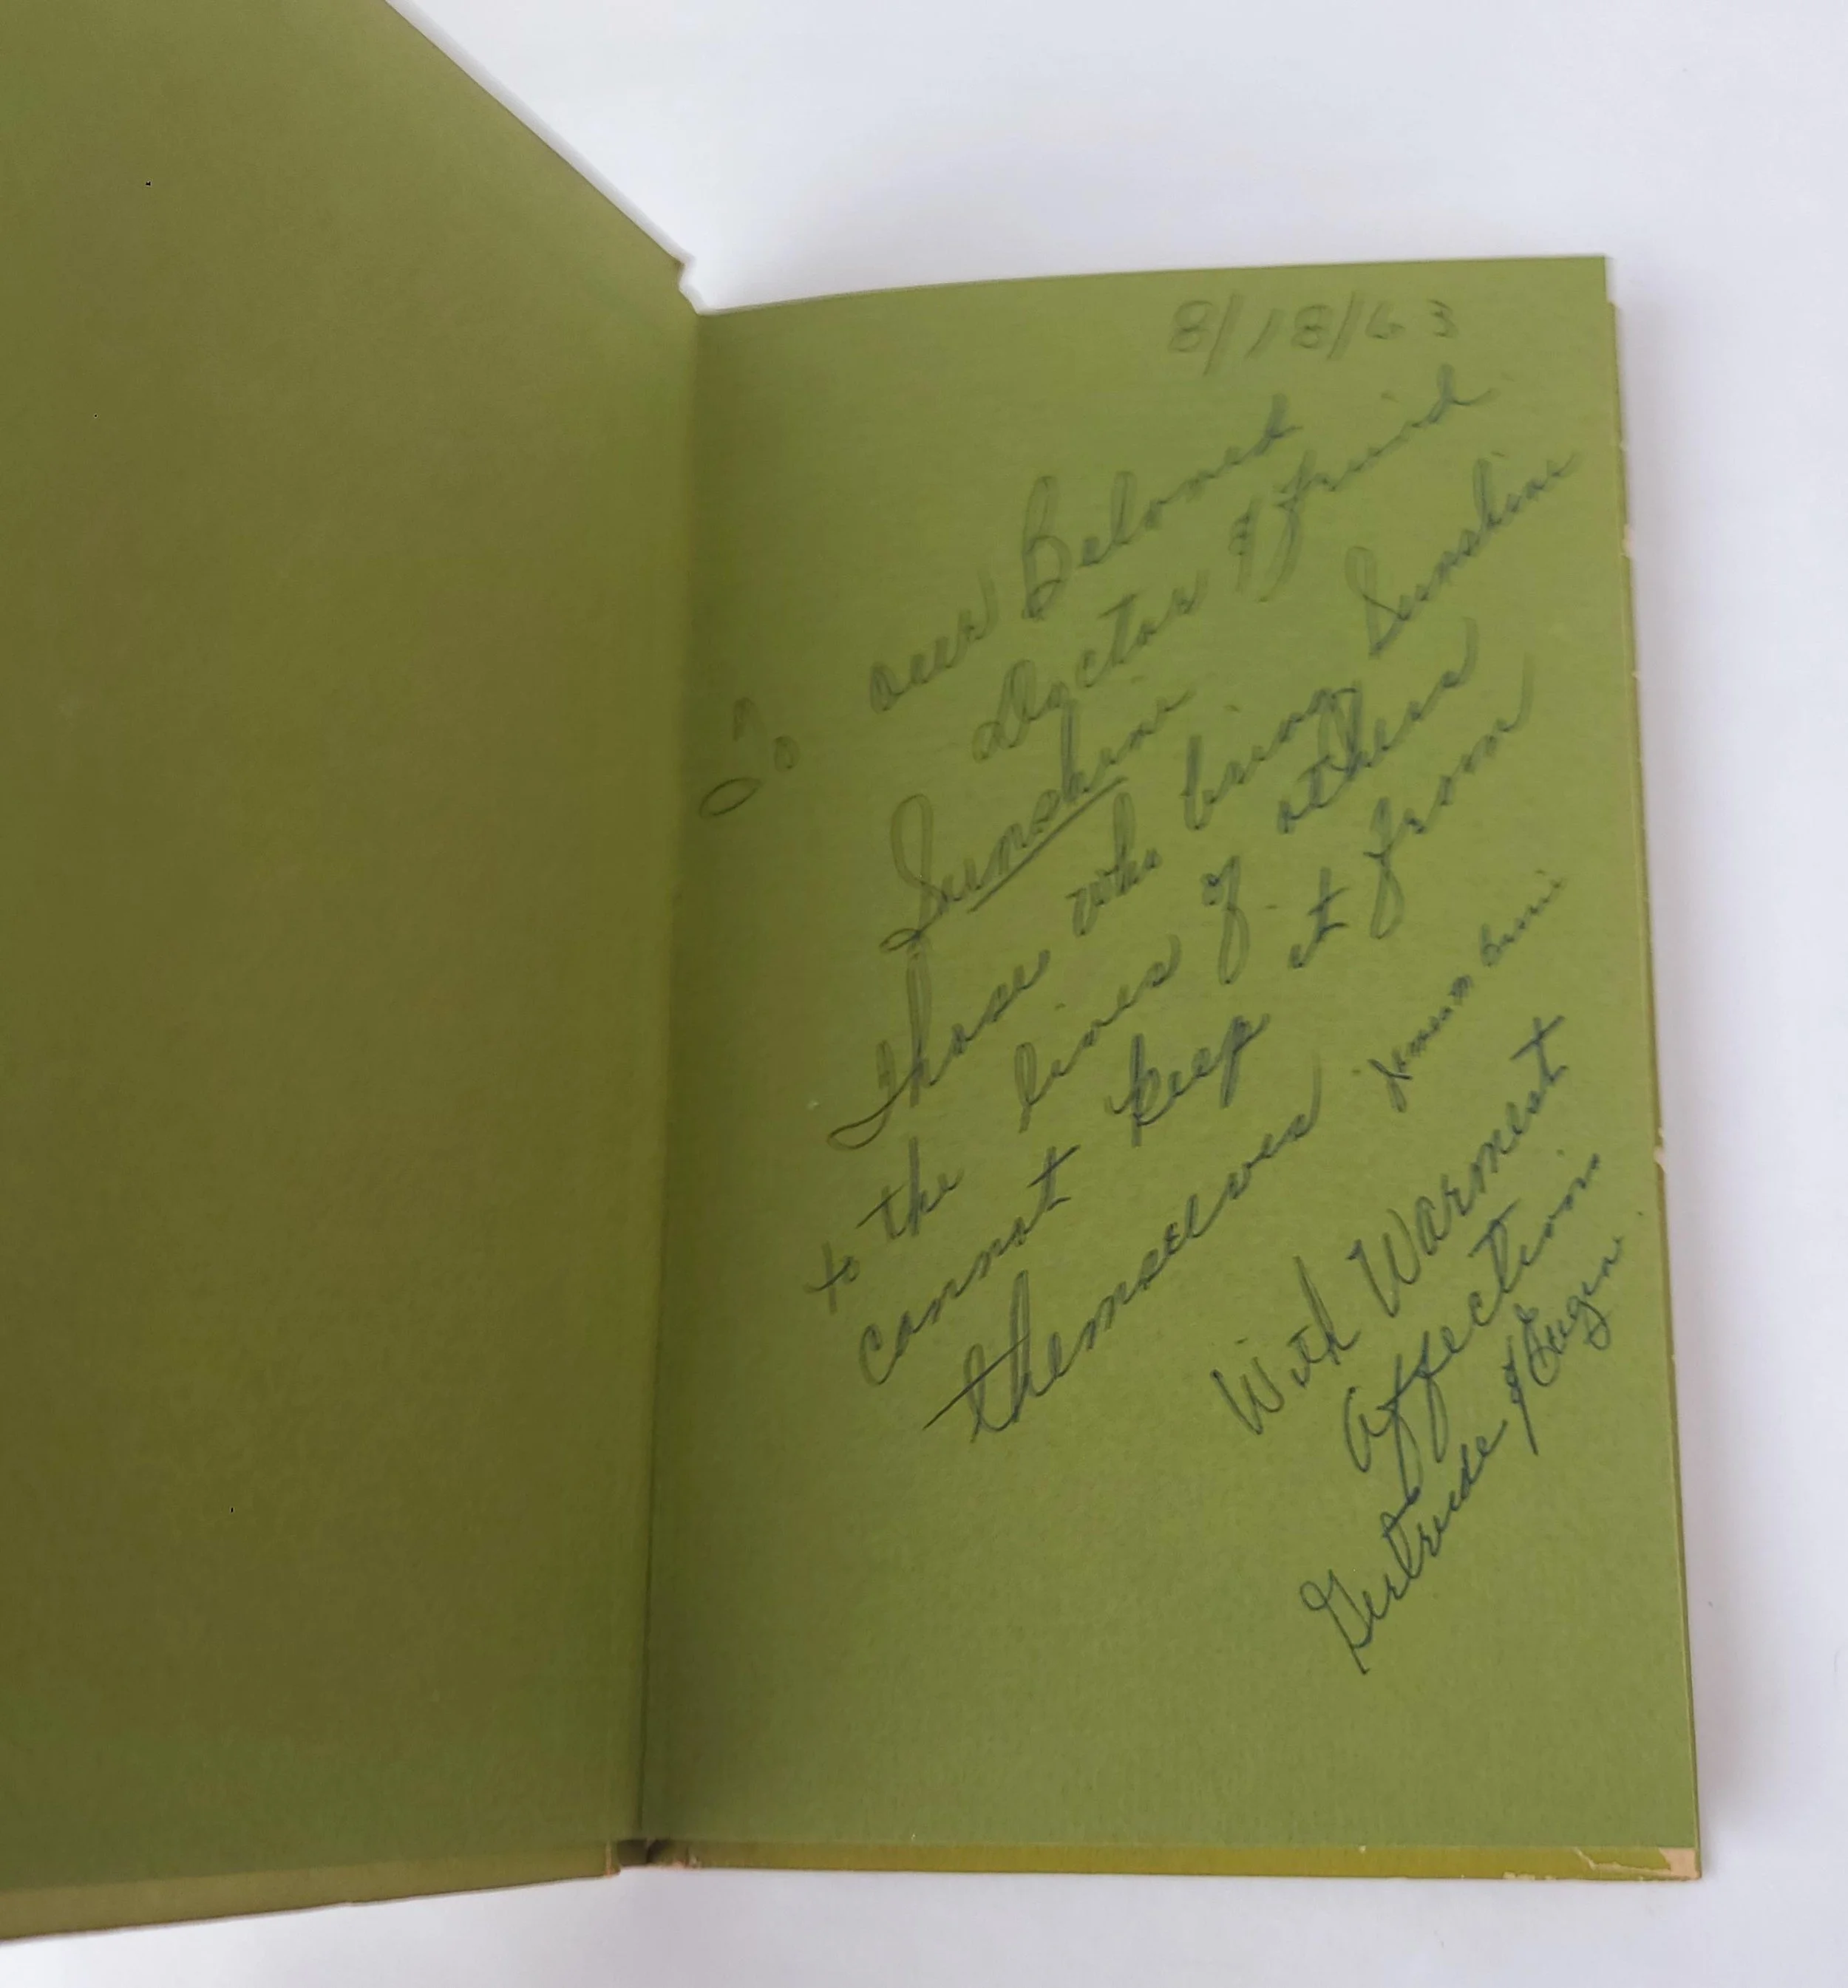 8/18/63
To our Beloved
Doctor & friend
Sunshine
Those who bring Sunshine
to the lives of others
cannot keep it from
themselves
With Warmest
Affection
Gertrude & Eugene